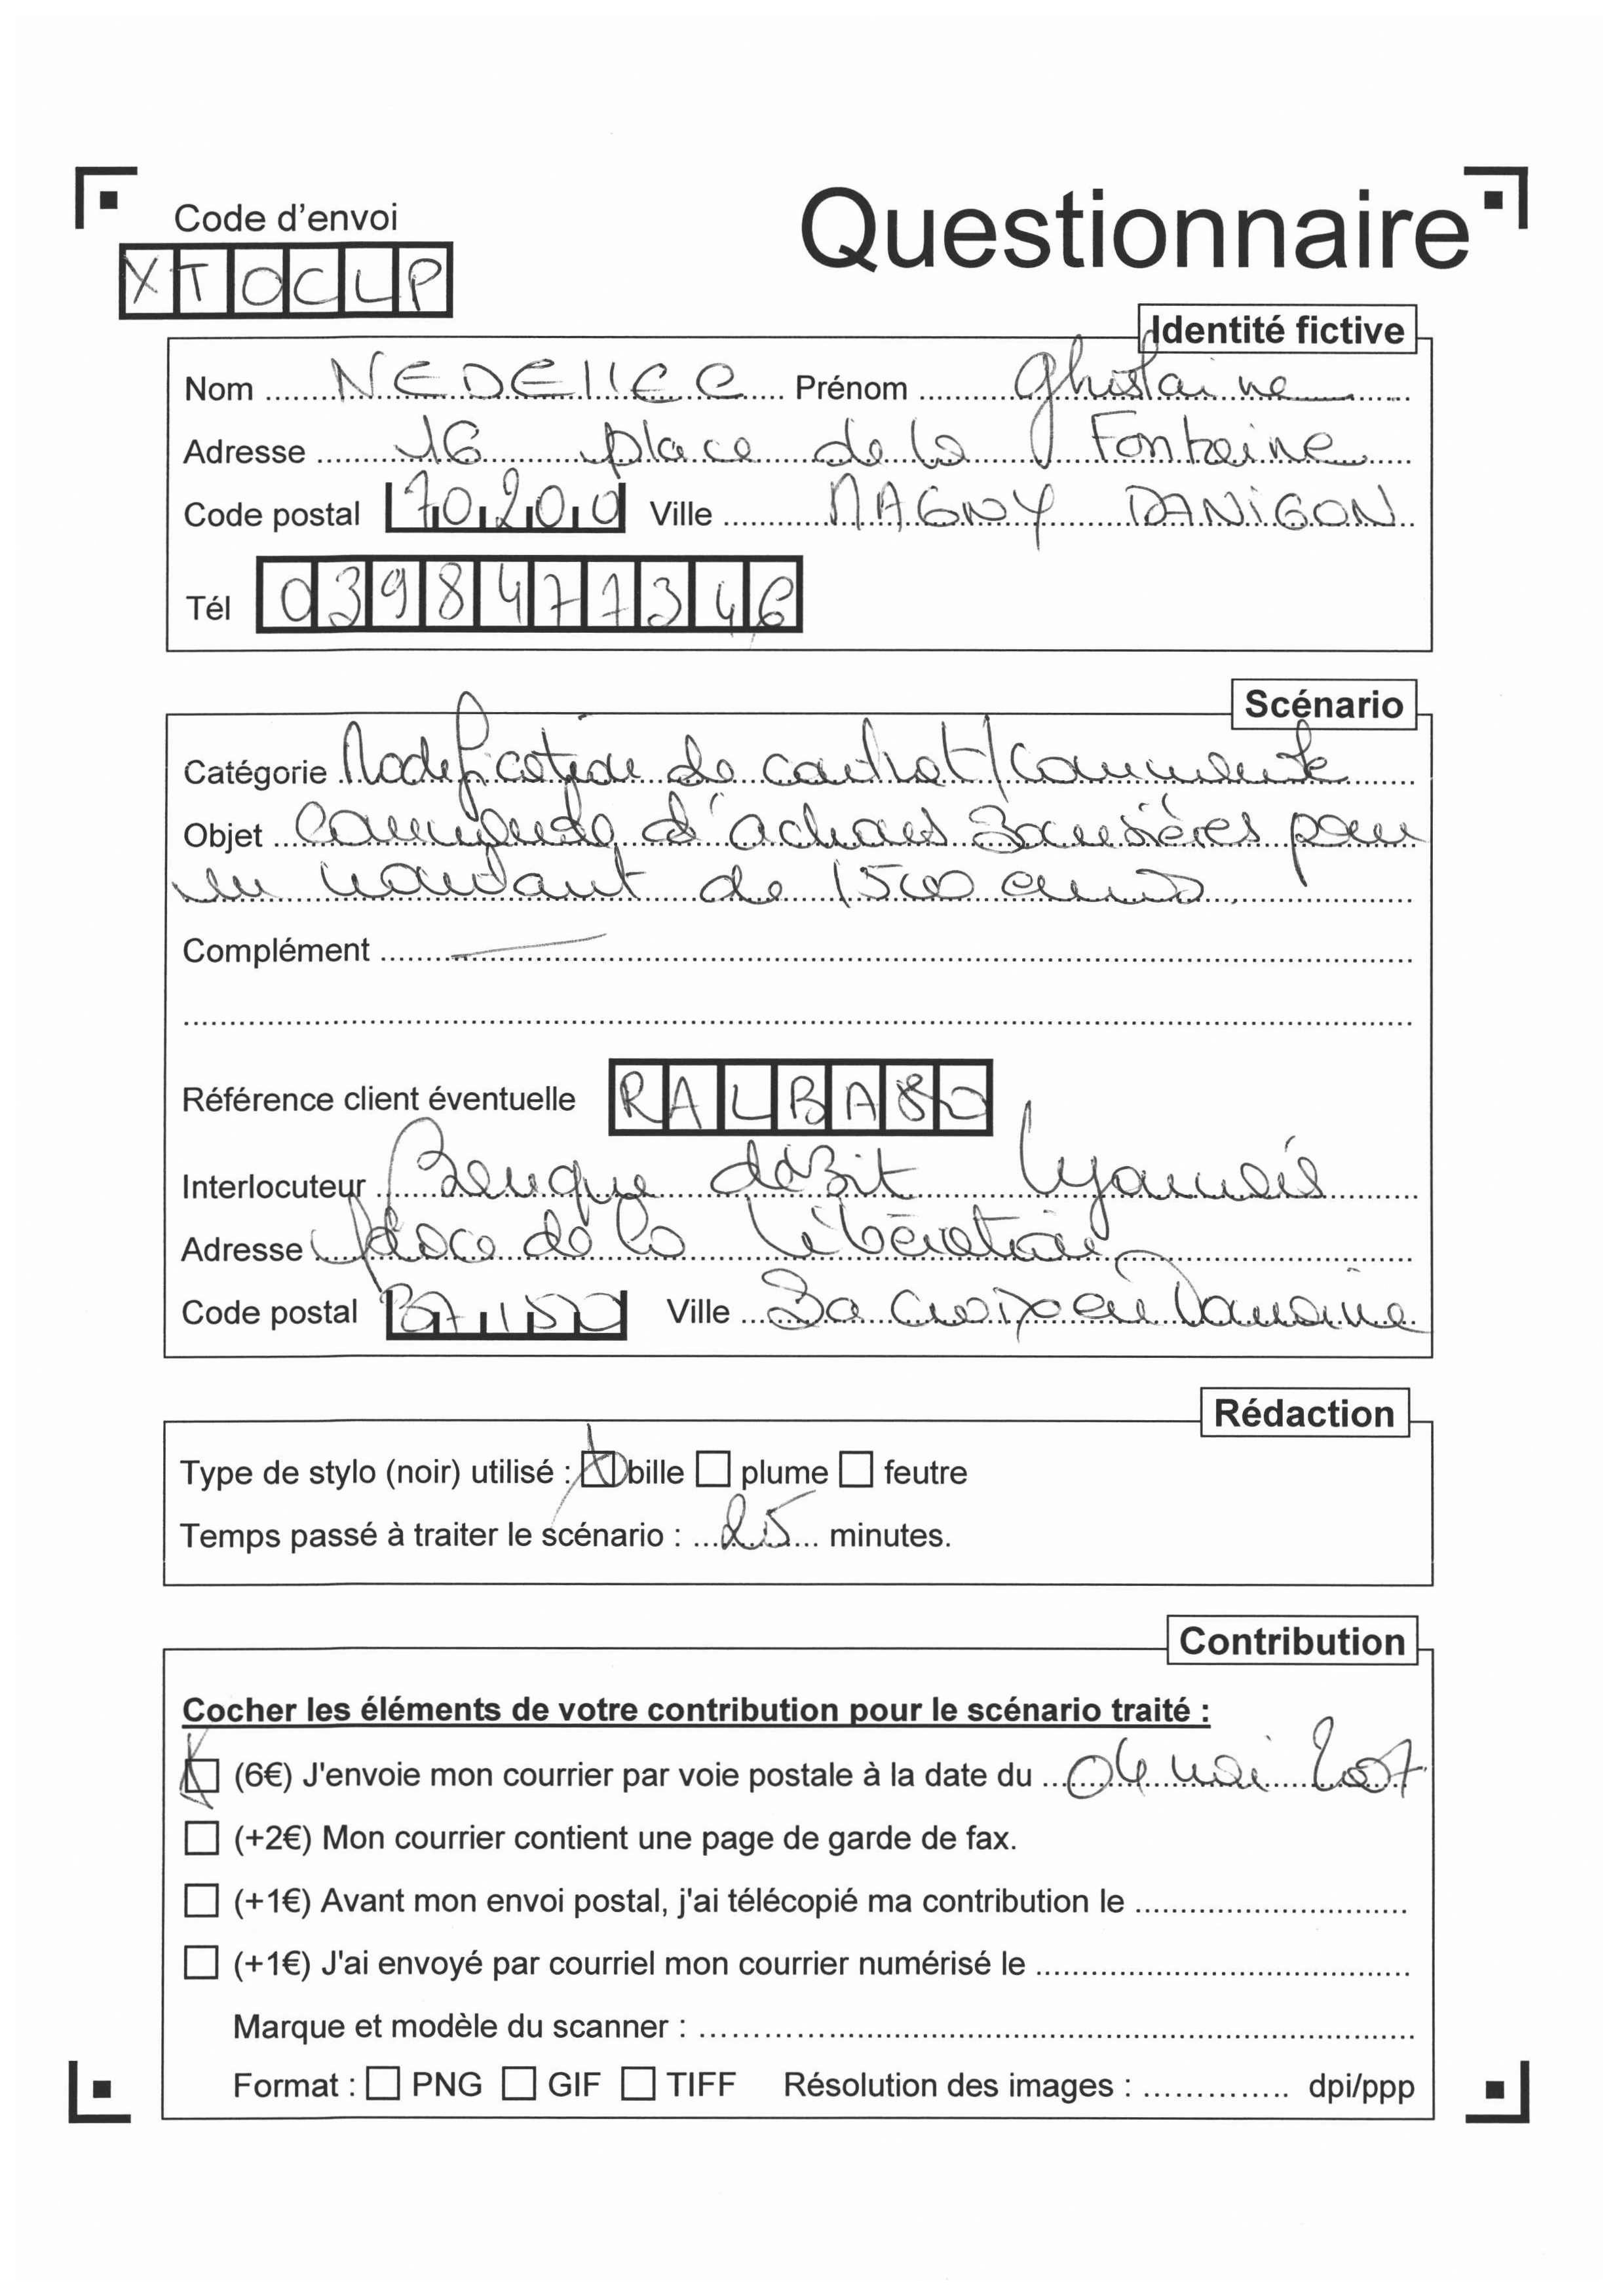 Code d'envoi
Questionnaire
XTOCLP
Identité fictive
Nom NEDELLEC Prénom Ghislaine
Adresse 16 place de la Fontaine
Code postal 70200 Ville MAGNY DANIGON
Tél 0398471346
Scénario
Catégorie Modification de contrat/Commande
Objet Commande d'achats pour
un montant de 1500 euros
Complément
Référence client éventuelle RALBA80
Interlocuteur Banque Lyonnais
Adresse place de la Libération
Code postal 37150 Ville La Croix en Touraine
Rédaction
Type de stylo (noir) utilisé : bille plume feutre
Temps passé à traiter le scénario : 25 minutes.
Contribution
Cocher les éléments de votre contribution pour le scénario traité :
(6€) J'envoie mon courrier par voie postale à la date du 04 mai 2007
(+2€) Mon courrier contient une page de garde de fax.
(+1€) Avant mon envoi postal, j'ai télécopié ma contribution le
(+1€) J'ai envoyé par courriel mon courrier numérisé le
Marque et modèle du scanner :
Format : PNG GIF TIFF Résolution des images : dpi/ppp